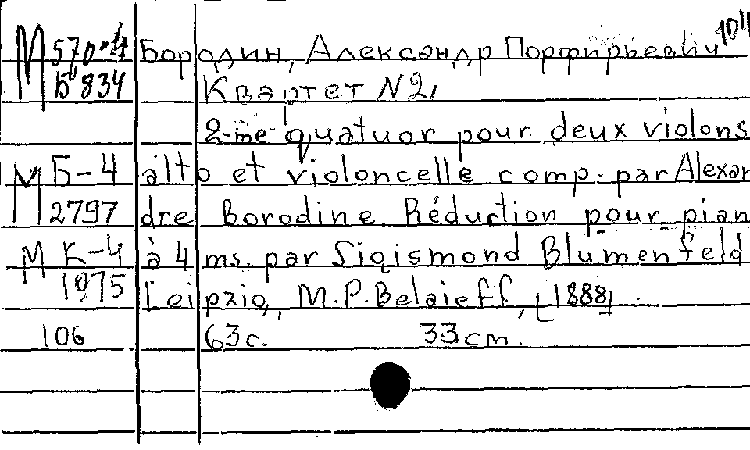 104
М 570-4 Бородин, Александр Порфирьевич
Б 834 Квартет N2,
2-me quatuor pour deux violons
М Б-4 alto et violoncelle comp. par Alexan
2797 dre Borodine Réduction pour pian
М К-4 à 4 ms. par Sigismond Blumenfeld
1975 Leipzig, M.P.Belaieff, [1888]
106 63с. 33cm.